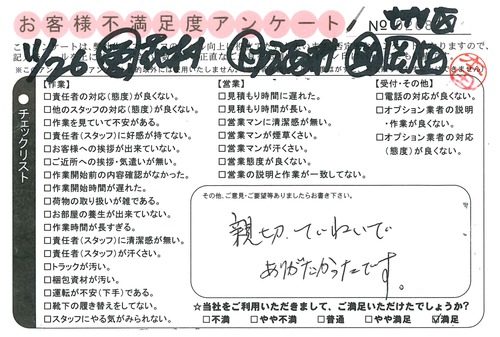 お客様不満足度アンケート
11/26
【作業】
□責任者の対応(態度)が良くない。
□他のスタッフの対応(態度)が良くない。
□作業を見ていて不安がある。
□責任者(スタッフ)に好感が持てない。
□お客様への挨拶が出来ていない。
□ご近所への挨拶・気遣いが無い。
□作業開始前の内容確認がなかった。
□作業開始時間が遅れた。
□荷物の取り扱いが雑である。
□お部屋の養生が出来ていない。
□作業時間が長すぎる。
□責任者(スタッフ)に清潔感が無い。
□責任者(スタッフ)が汗さい。
□トラックが汚い。
□梱包資材が汚い。
□運転が不安(下手)である。
□靴下の履き替えをしてない。
□スタッフにやる気がみられない。
【営業】
□見積もり時間に遅れた。
□見積もり時間が長い。
□営業マンに清潔感が無い。
□営業マンが煙草くさい。
□営業マンが汗さい。
□営業態度が良くない。
□営業の説明と作業が一致してない。
【受付・その他】
□電話の対応が良くない。
□オプション業者の説明
・作業が良くない。
□オプション業者の対応
(態度)が良くない。
チェックリスト
その他、ご意見・ご要望等ありましたらお書き下さい。
親切、ていねいで
ありがたかったです。
☆当社をご利用いただきまして、ご満足いただけたでしょうか?
□不満 □やや不満 □普通 □やや満足 ☑満足